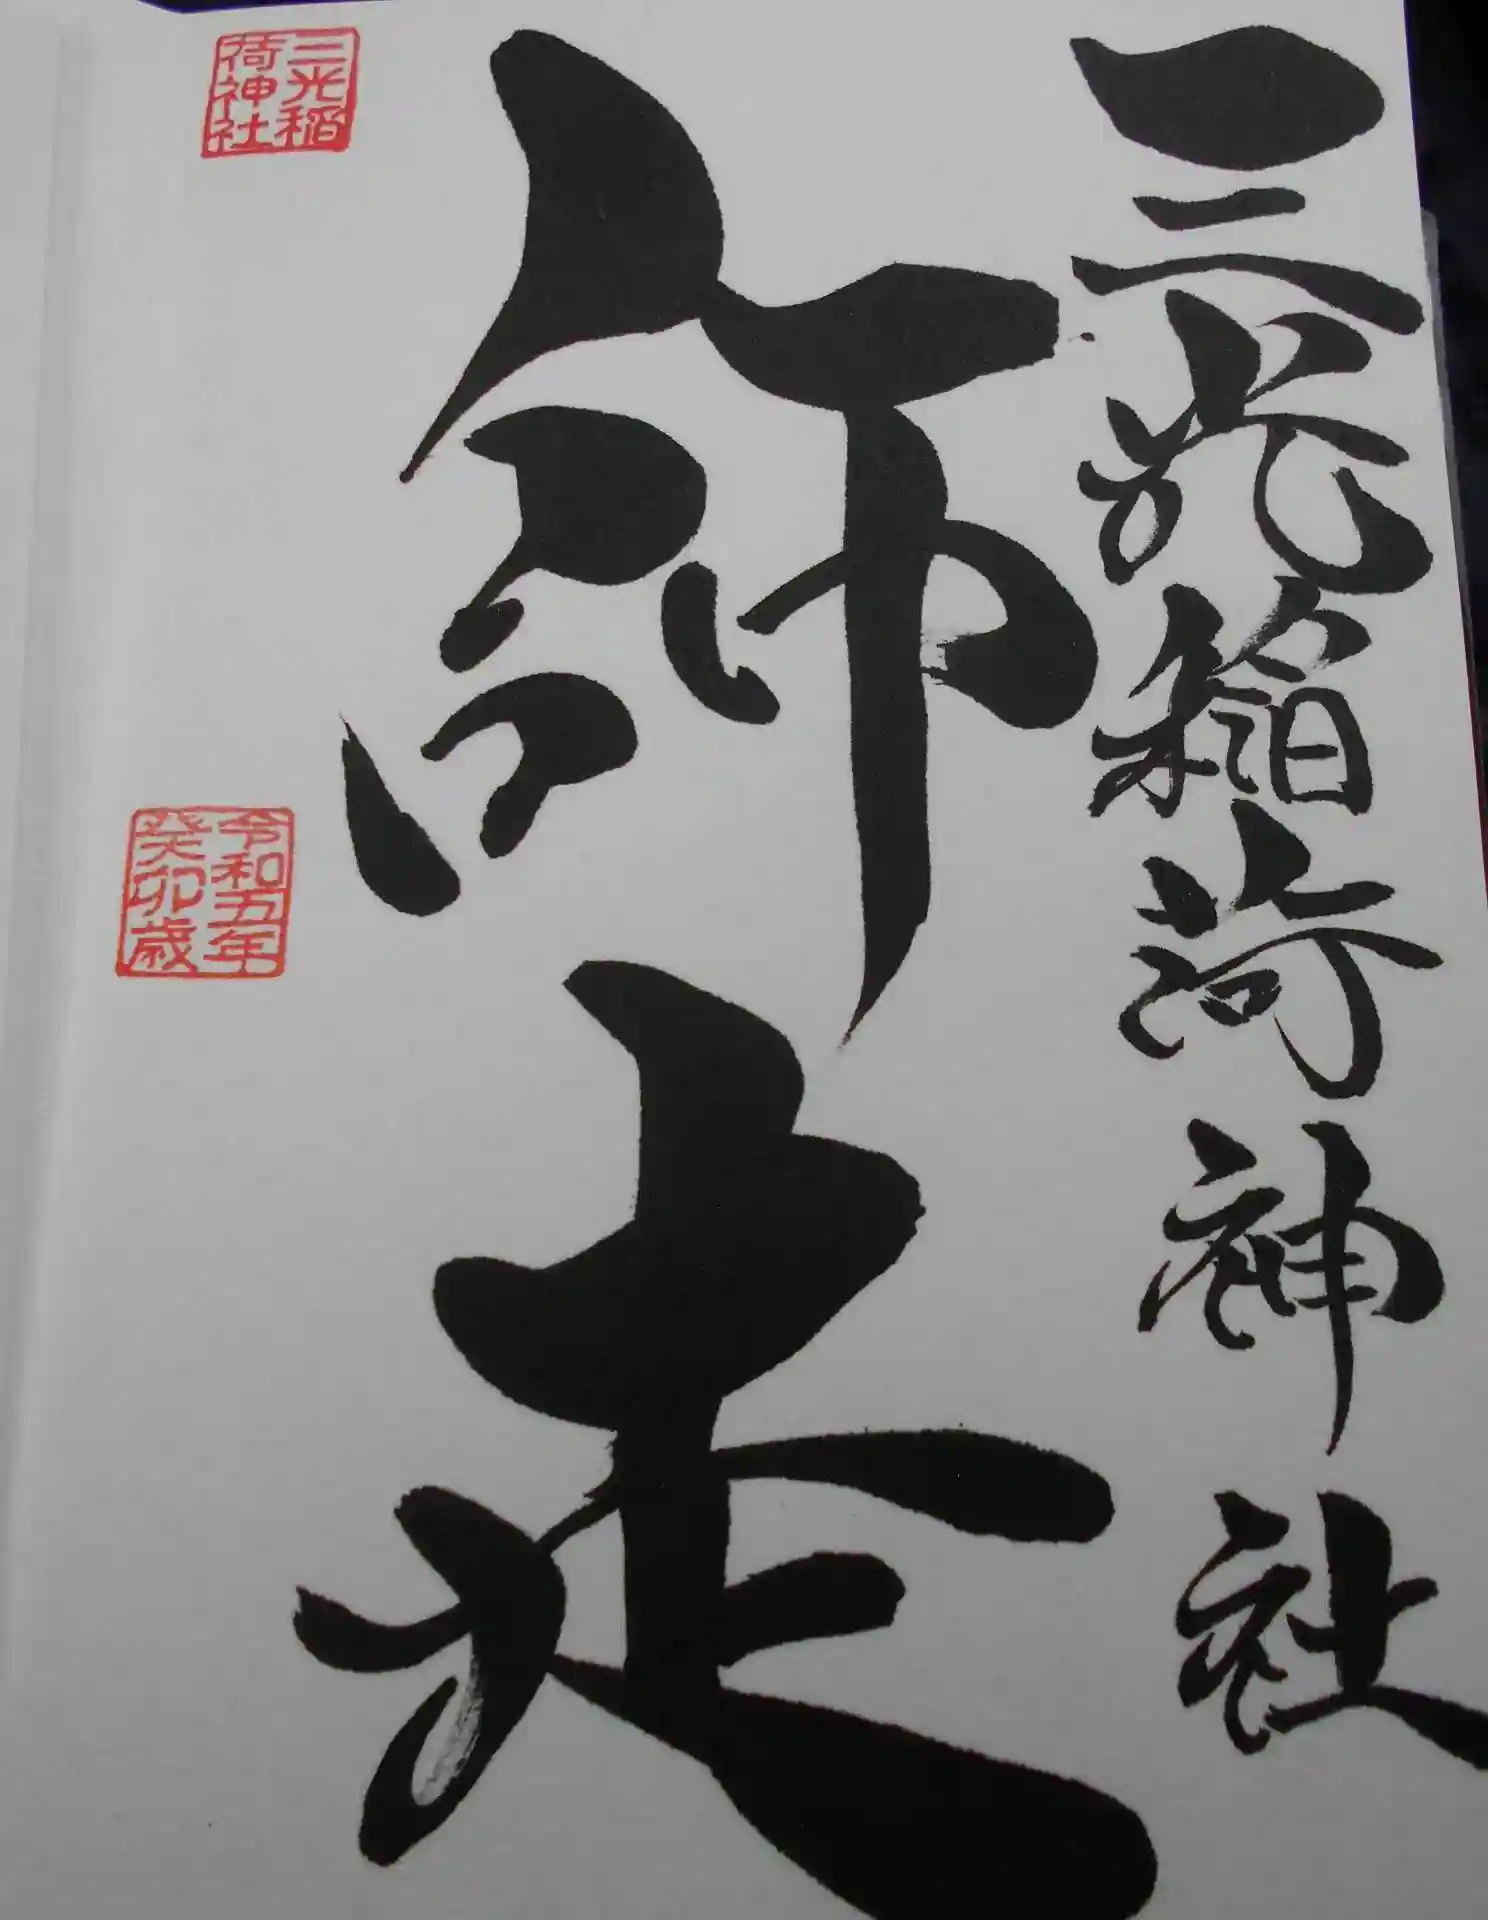 三光稲荷神社
師走
三光稲
荷神社
令和五年
癸卯歳